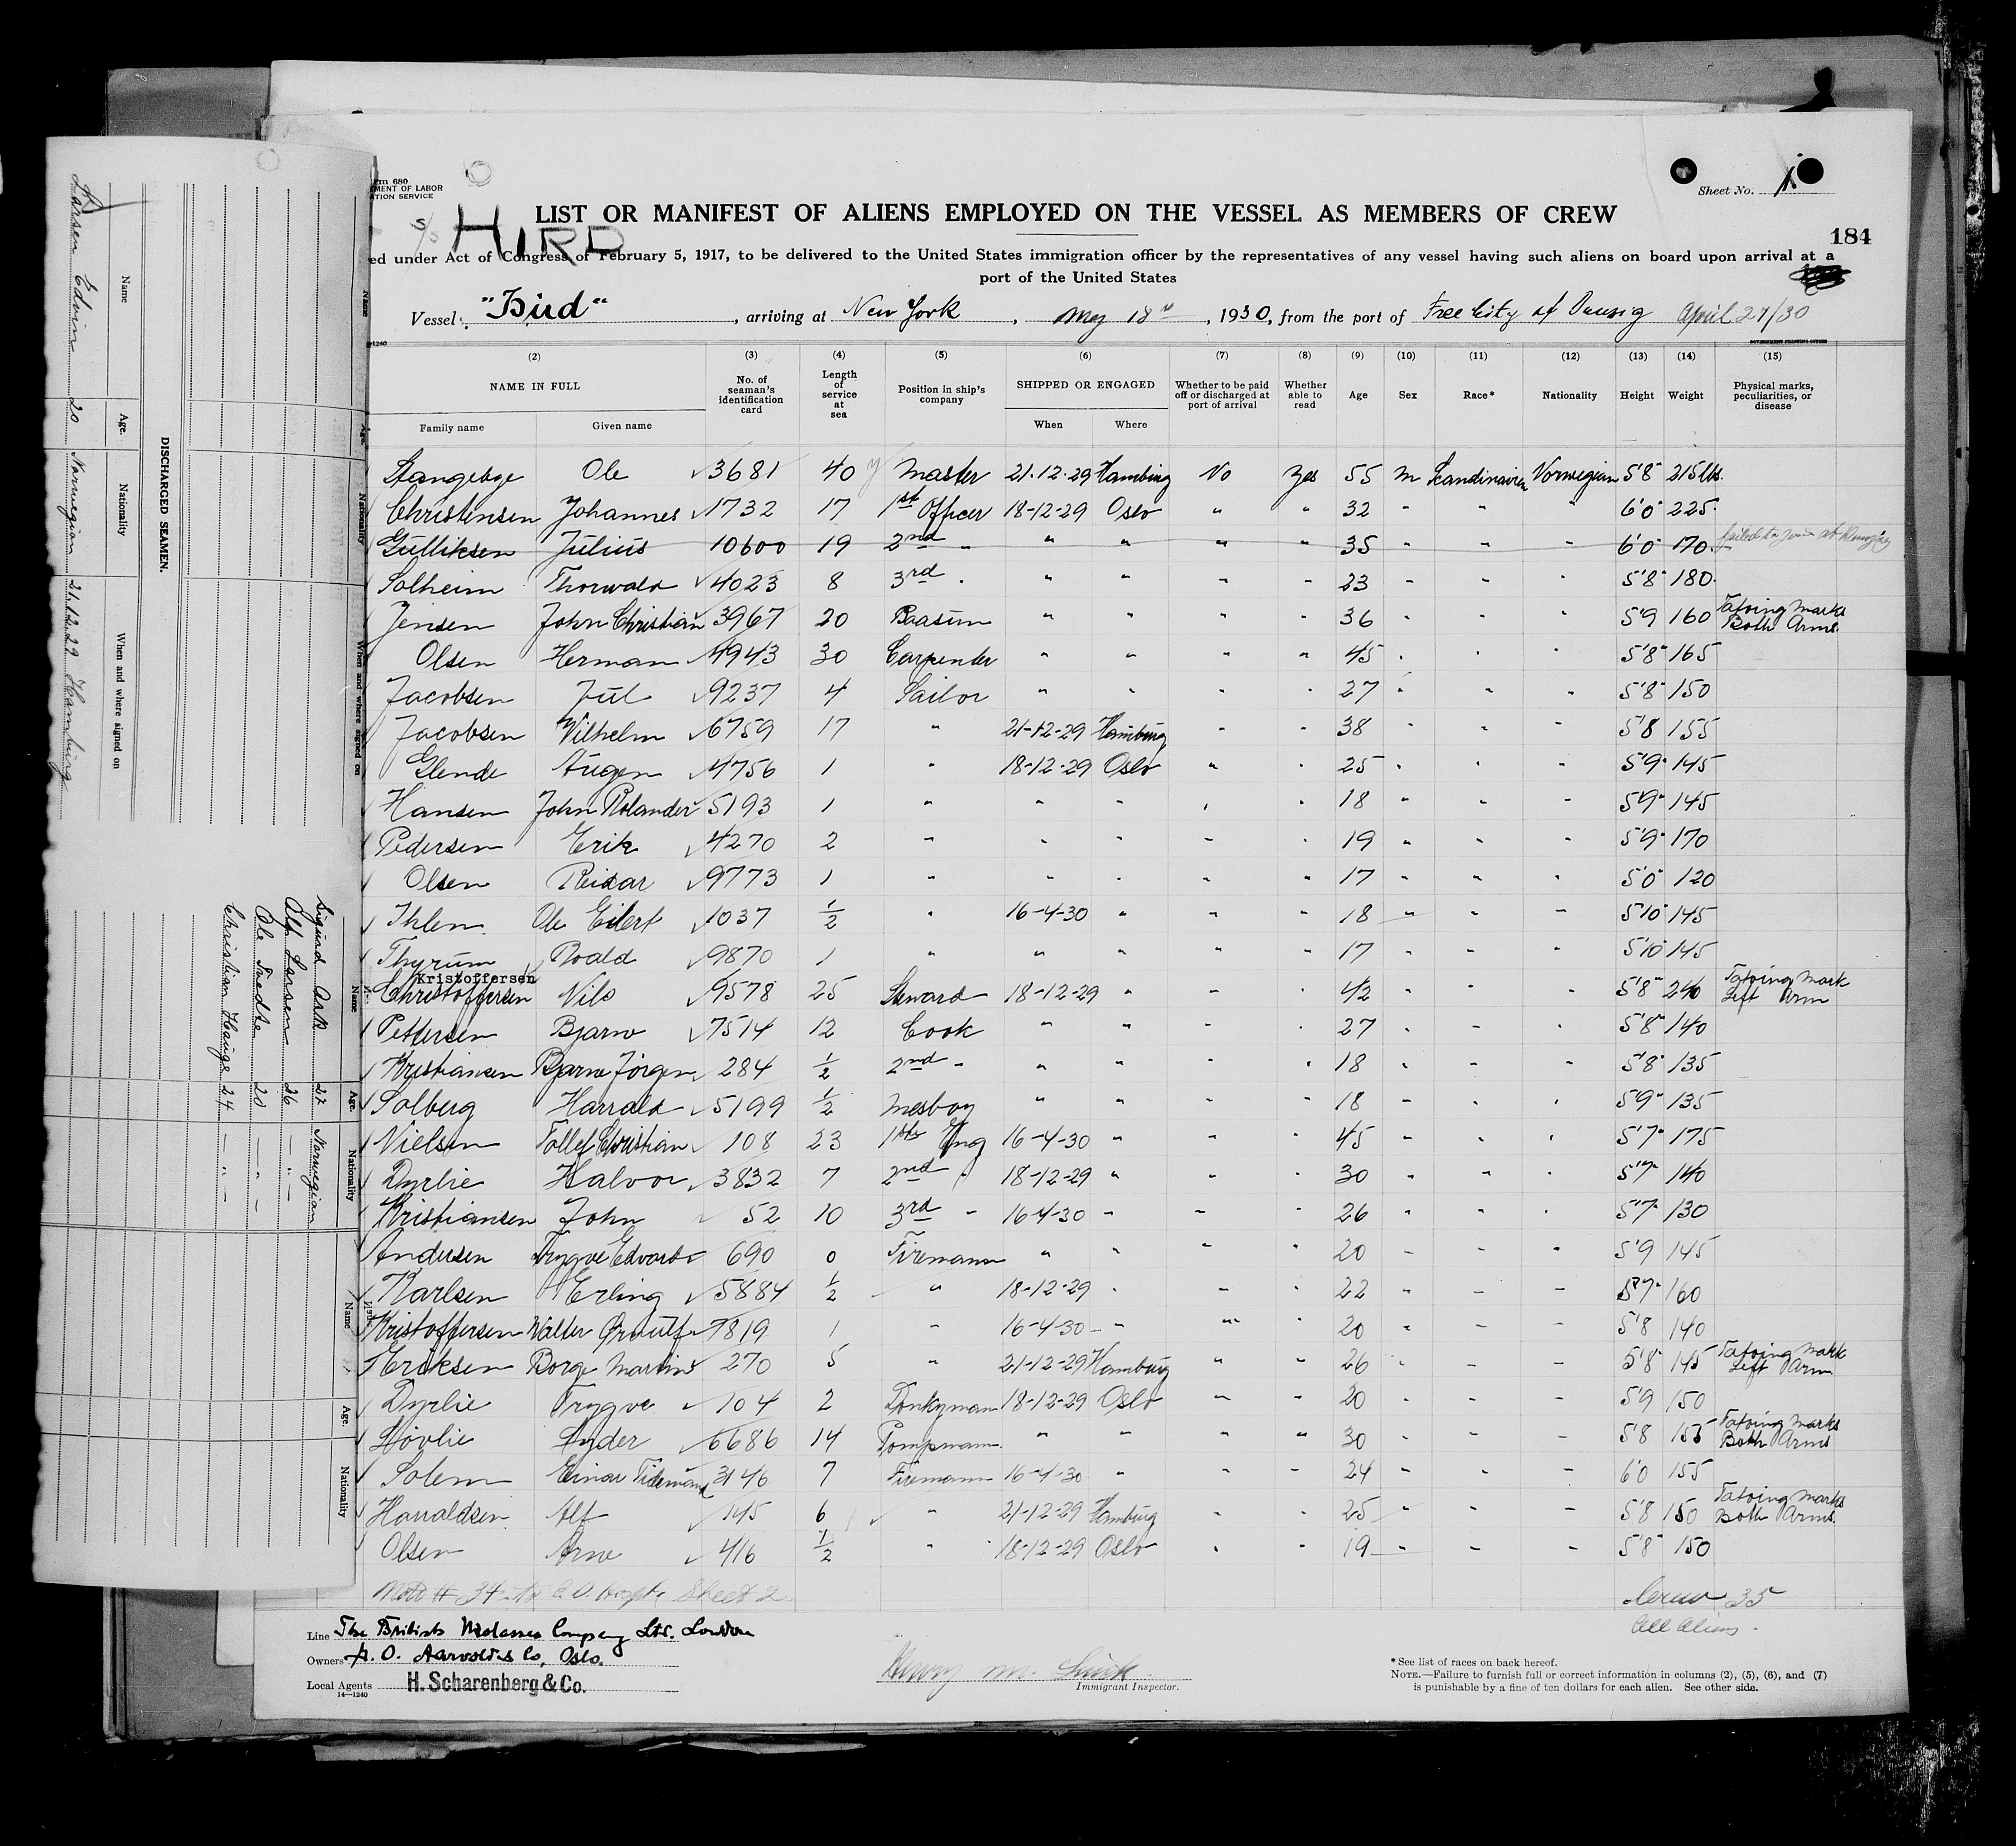 Form 680
MENT OF LABOR
ATION SERVICE
Sheet No. 1
S/S HIRD
LIST OR MANIFEST OF ALIENS EMPLOYED ON THE VESSEL AS MEMBERS OF CREW
184
ed under Act of Congress of February 5, 1917, to be delivered to the United States immigration officer by the representatives of any vessel having such aliens on board upon arrival at a
port of the United States
Vessel "Hird", arriving at New York, May 18th, 1930, from the port of Free City of Danzig April 27/30
(2) (3) (4) (5) (6) (7) (8) (9) (10) (11) (12) (13) (14) (15)
NAME IN FULL No. of seaman's identification card Length of service at sea Position in ship's company SHIPPED OR ENGAGED Whether to be paid off or discharged at port of arrival Whether able to read Age Sex Race* Nationality Height Weight Physical marks, peculiarities, or disease
Family name Given name When Where
Stangebye Ole 3681 40 Master 21-12-29 Hamburg No Yes 55 M Scandinavien Norwegian 5'8" 215 lbs.
Christensen Johannes 1732 17 1st Officer 18-12-29 Oslo " " 32 " " " 6'0" 225
Gulliksen Julius 10600 19 2nd " " " " " 35 " " " 6'0" 170 failed to join at Danzig
Solheim Thorwald 4023 8 3rd " " " " " 23 " " " 5'8" 180
Jensen John Christian 3967 20 Baasun " " " " 36 " " " 5'9 160 Tatoing Marks Both Arms
Olsen Herman 4943 30 Carpenter " " " " 45 " " " 5'8" 165
Jacobsen Jul 9237 4 Sailor " " " " 27 " " " 5'8" 150
Jacobsen Vilhelm 6759 17 " 21-12-29 Hamburg " " 38 " " 5'8 155
Glende Augen 4756 1 " 18-12-29 Oslo " " 25 " " " 5'9" 145
Hansen John Rolander 5193 1 " " " " " 18 " " " 5'9" 145
Pedersen Erik 4270 2 " " " " " 19 " " " 5'9" 170
Olsen Reidar 9773 1 " " " " " 17 " " " 5'0" 120
Ihlen Ole Eilert 1037 1/2 " 16-4-30 " " " 18 " " " 5'10" 145
Thyrum Roald 9870 1 " " " " " 17 " " " 5'10" 145
Kristoffersen
Christoffersen Nils 9578 25 Steward 18-12-29 " " " 42 " " " 5'8" 240 Tatoing Mark Left Arm
Pettersen Bjarne 7514 12 Cook " " " " 27 " " " 5'8" 140
Kristiansen Bjarne Jörgen 284 1/2 2nd " " " " " 18 " " " 5'8" 135
Solberg Harrald 5199 1/2 Mesboy " " " " 18 " " " 5'9" 135
Nielsen Tollef Christian 108 23 1st Eng 16-4-30 " " " 45 " " " 5'7" 175
Dyrlie Halvor 3832 7 2nd " 18-12-29 " " " 30 " " " 5'7" 140
Kristiansen John 52 10 3rd " 16-4-30 " " " 26 " " " 5'7" 130
Andersen Trygve Edvard 690 0 Firemann " " " " 20 " " " 5'9 145
Karlsen Erling 5884 1/2 " 18-12-29 " " " 22 " " " 5'7" 160
Kristoffersen Walter 7819 1 " 16-4-30 " " " 20 " " " 5'8 140
Eriksen Borge Martins 270 5 " 21-12-29 Hamburg " " 26 " " " 5'8" 145 Tatoing Mark Left Arm
Dyrlie Trygve 104 2 Donkyman 18-12-29 Oslo " " 20 " " " 5'9 150
Hovlie Lyder 6686 14 Pompmann " " " " 30 " " " 5'8 155 Tatoing Marks Both Arms
Solem Einar Tidemand 3146 7 Firemann 16-4-30 " " " 24 " " " 6'0 155
Harraldsen Alf 145 6 " 21-12-29 Hamburg " " 25 " " " 5'8 150 Tatoing Marks Both Arms
Olsen Arne 416 1/2 " 18-12-29 Oslo " " 19 " " " 5'8" 150
Sheet 2
Crew 35
All Aliens
Line The British Molasses Company Ltd. London
Owners A. O. Aarvold & Co, Oslo.
Local Agents H. Scharenberg & Co.
14—1240
Henry M.
Immigrant Inspector.
*See list of races on back hereof.
NOTE.—Failure to furnish full or correct information in columns (2), (5), (6), and (7)
is punishable by a fine of ten dollars for each alien. See other side.
DISCHARGED SEAMEN.
Name Age. Nationality When and where signed on
Larsen Edvin 20 Norwegian 21.12.29 Hamburg
Name Age. Nationality
Sigurd Ask 22 Norwegian
Alf Larsen 26 — " —
Ole Tvedte 20 — " —
Christian Hauge 24 — " —
Name Age. Nationality